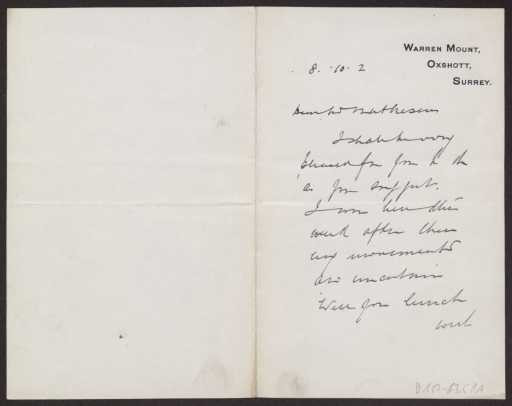 WARREN MOUNT,
OXSHOTT,
SURREY.
8. 10. 2
Dear Mr Matheson
I shall be very
pleased for you to do
as you suggest.
I am here this
week after then
my movements
are uncertain
Will you lunch
with